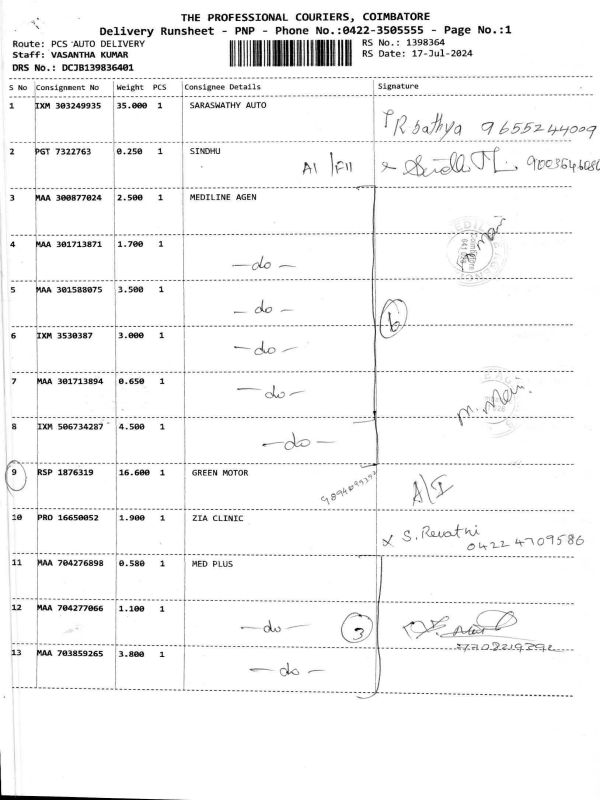 THE PROFESSIONAL COURIERS, COIMBATORE
Delivery Runsheet - PNP - Phone No.:0422-3505555 - Page No.:1
Route: PCS AUTO DELIVERY RS No.: 1398364
Staff: VASANTHA KUMAR RS Date: 17-Jul-2024
DRS No.: DCJB139836401
S No Consignment No Weight PCS Consignee Details Signature
1 IXM 303249935 35.000 1 SARASWATHY AUTO
R Sathya 9655244009
2 PGT 7322763 0.250 1 SINDHU
3 MAA 300877024 2.500 1 MEDILINE AGEN
4 MAA 301713871 1.700 1 -do-
5 MAA 301588075 3.500 1 -do-
6
6 IXM 3530387 3.000 1 -do-
7 MAA 301713894 0.650 1 -do-
M. Mani
8 IXM 506734287 4.500 1 -do-
9 RSP 1876319 16.600 1 GREEN MOTOR
A/I
10 PRO 16650052 1.900 1 ZIA CLINIC
x S. Revathi
0422 4709586
11 MAA 704276898 0.580 1 MED PLUS
12 MAA 704277066 1.100 1 -do- 3
13 MAA 703859265 3.800 1 -do-